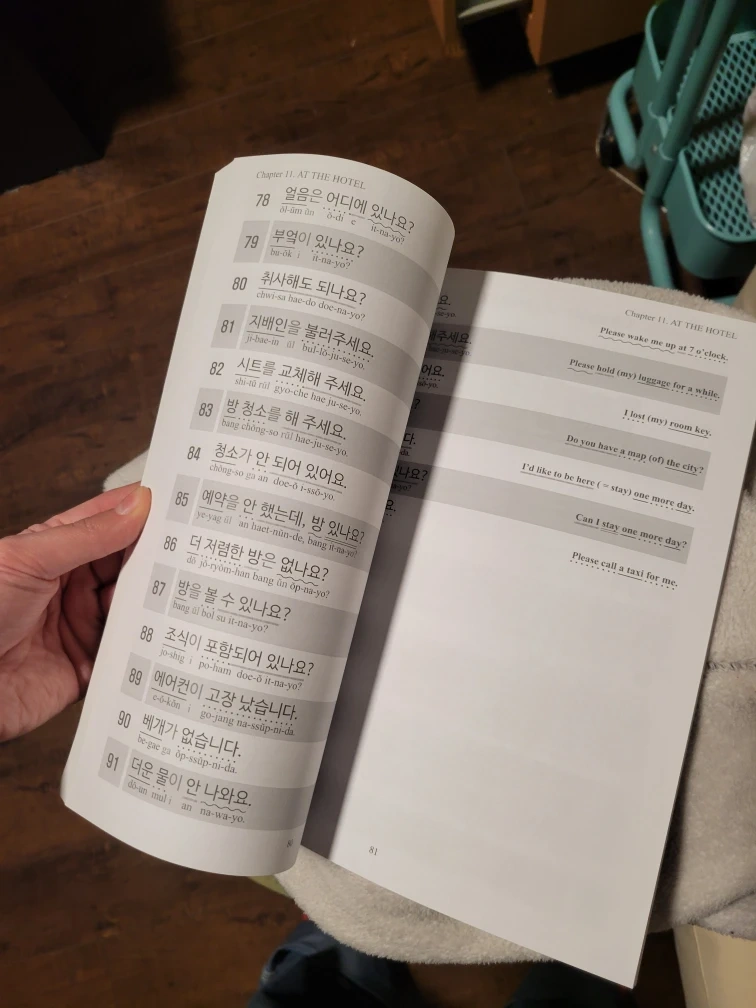 Chapter 11. AT THE HOTEL
78 얼음은 어디에 있나요?
ŏl-ŭm ŭn ŏ-di e it-na-yo?
79 부엌이 있나요?
bu-ŏk i it-na-yo?
80 취사해도 되나요?
chwi-sa hae-do doe-na-yo?
81 지배인을 불러주세요.
ji-bae-in ŭl bul-lŏ-ju-se-yo.
82 시트를 교체해 주세요.
shi-tŭ rŭl gyo-che hae ju-se-yo.
83 방 청소를 해 주세요.
bang chŏng-so rŭl hae-ju-se-yo.
84 청소가 안 되어 있어요.
chŏng-so ga an doe-ŏ i-ssŏ-yo.
85 예약을 안 했는데, 방 있나요?
ye-yag ŭl an haet-nŭn-de, bang it-na-yo?
86 더 저렴한 방은 없나요?
dŏ jŏ-ryŏm-han bang ŭn ŏp-na-yo?
87 방을 볼 수 있나요?
bang ŭl bol su it-na-yo?
88 조식이 포함되어 있나요?
jo-shig i po-ham doe-ŏ it-na-yo?
89 에어컨이 고장 났습니다.
e-ŏ-kŏn i go-jang na-ssŭp-ni-da.
90 베개가 없습니다.
be-gae ga ŏp-ssŭp-ni-da.
91 더운 물이 안 나와요.
dŏ-un mul i an na-wa-yo.
Chapter 11. AT THE HOTEL
Please wake me up at 7 o'clock.
Please hold (my) luggage for a while.
I lost (my) room key.
Do you have a map (of) the city?
I'd like to be here ( = stay) one more day.
Can I stay one more day?
Please call a taxi for me.
81